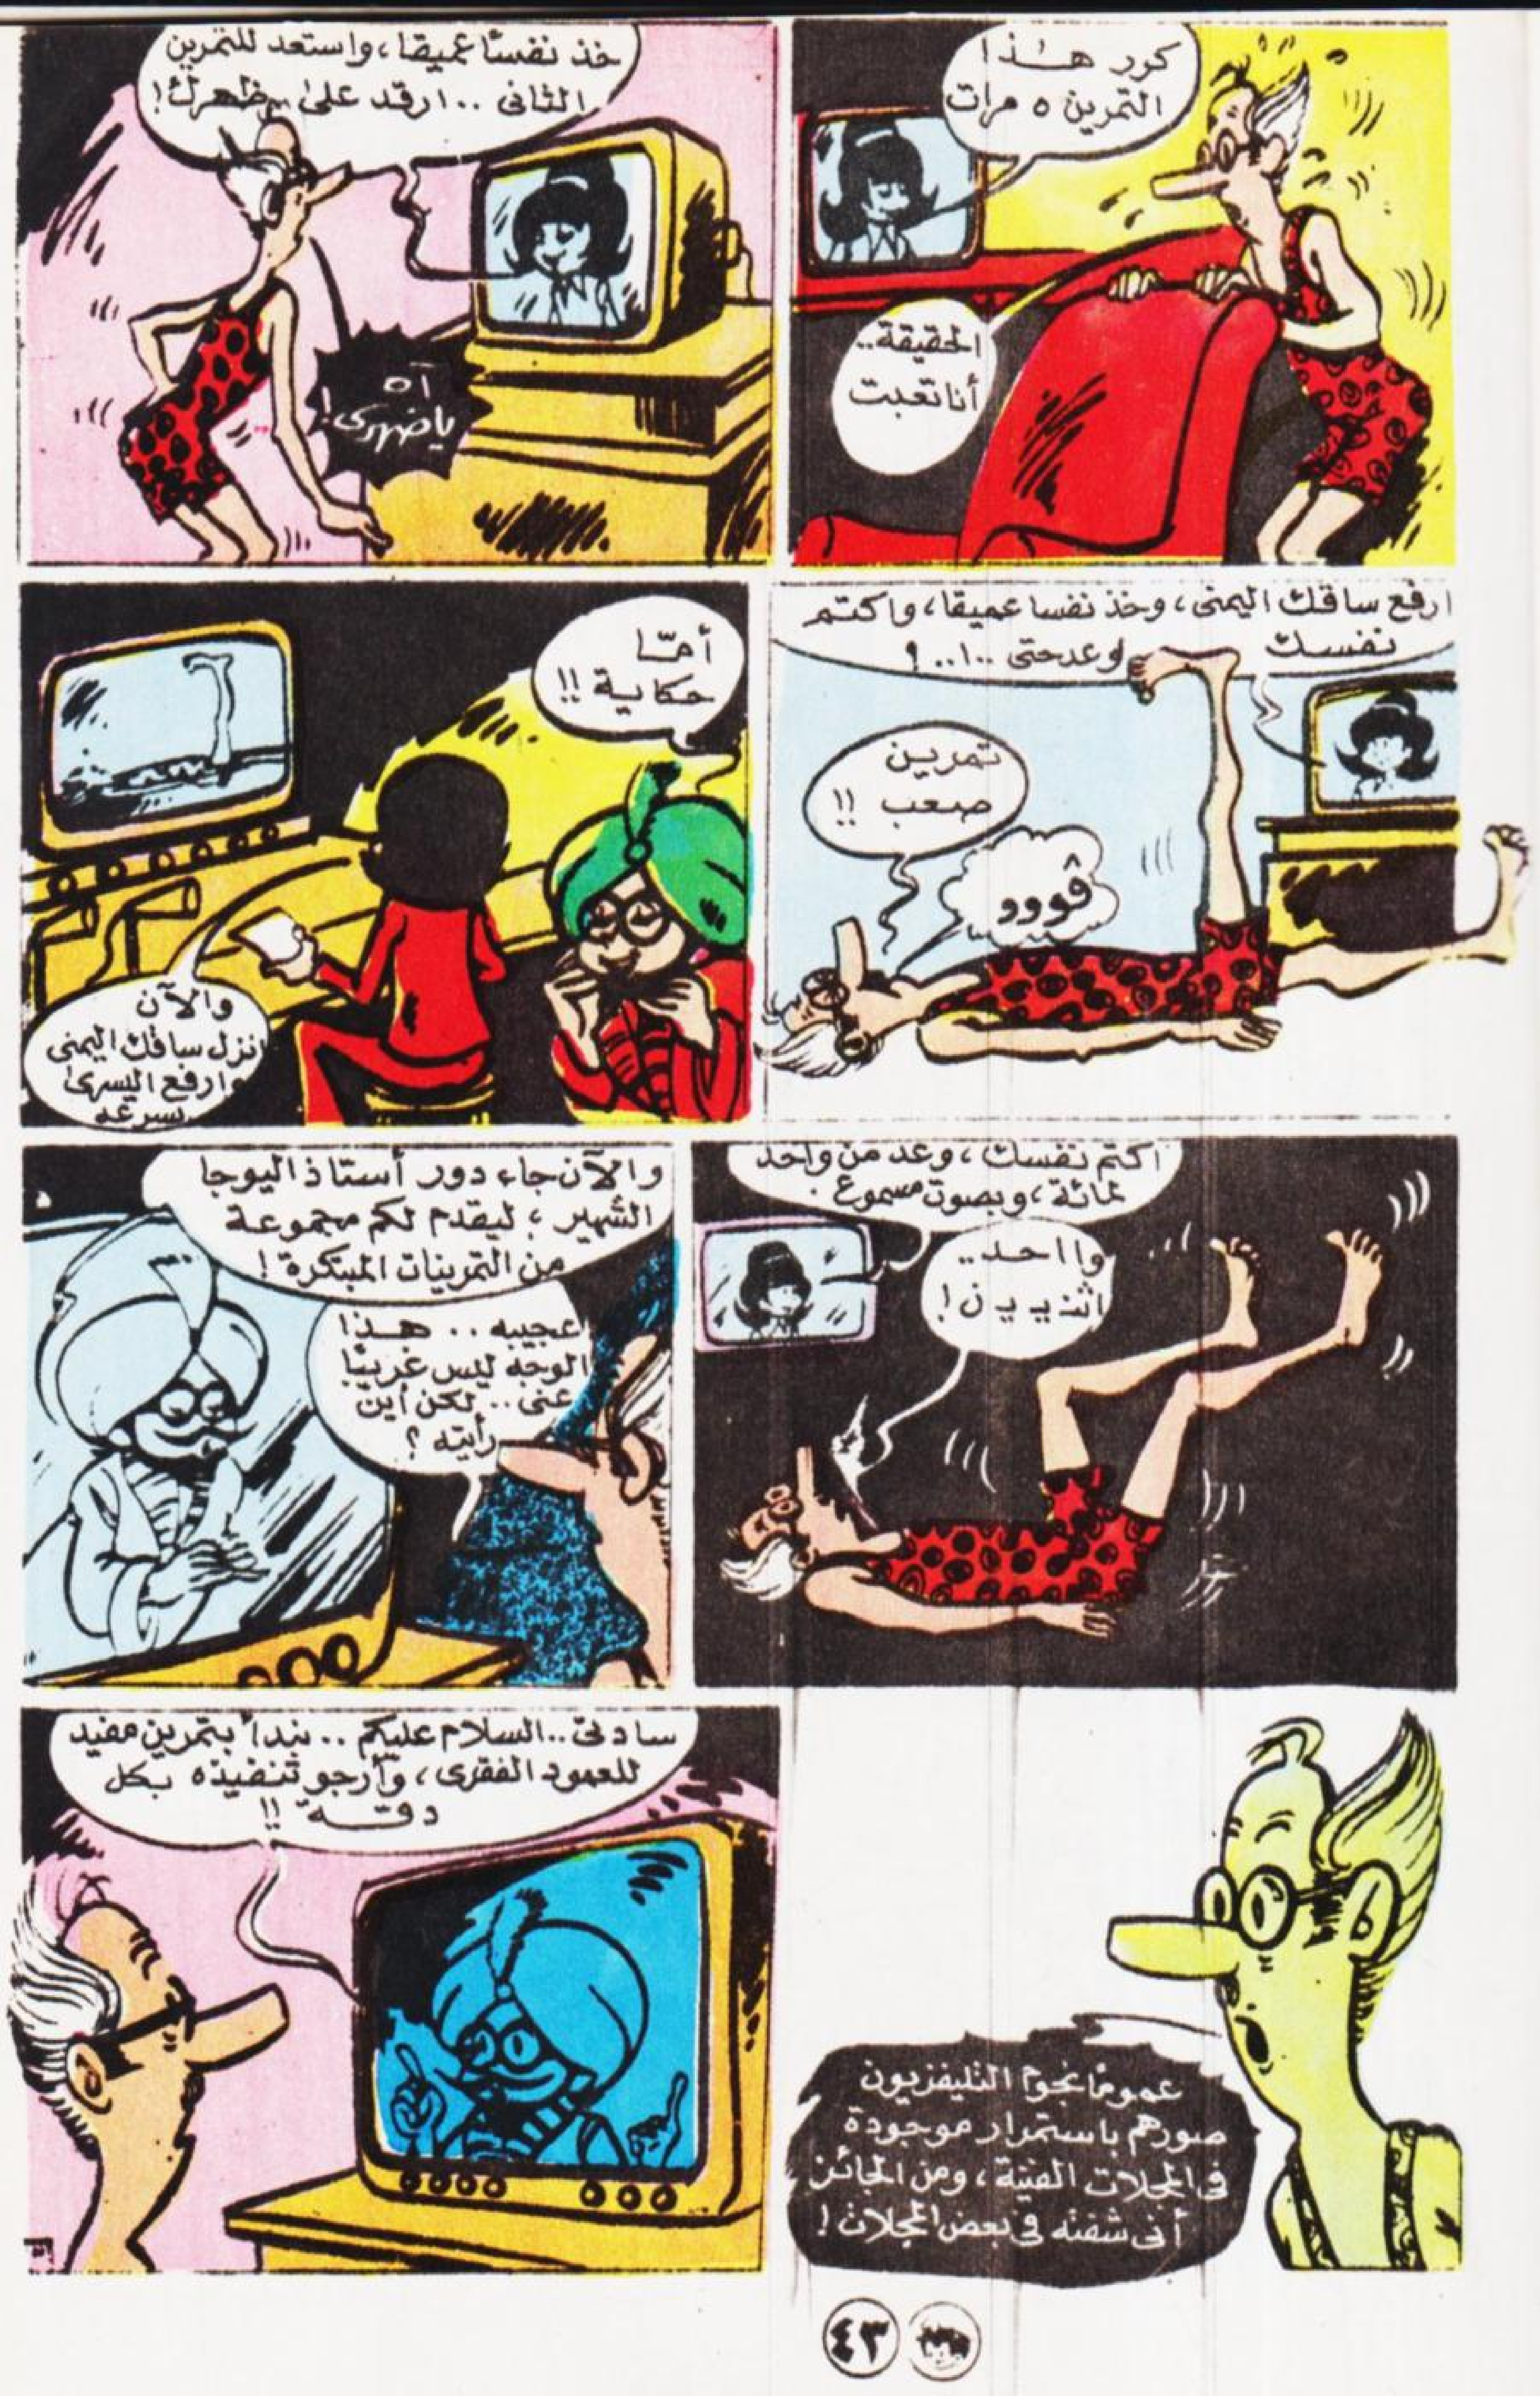 كرر هذا
التمرين ٥ مرات
الحقيقة..
أنا تعبت
خذ نفسًا عميقا، واستعد للتمرين
الثانى .. ارقد على ظهرك!
آه
ياضهرى!
ارفع ساقك اليمنى، وخذ نفسا عميقا، واكتم
نفسك وعد حتى ١٠..
تمرين
صعب !!
ڤووو
أمّا
حكاية !!
والآن
انزل ساقك اليمنى
وارفع اليسرى
بسرعه
اكتم نفسك، وعد من واحد
لمائة، وبصوت مسموع .
وااحد..
اثنييين!
والآن جاء دور أستاذ اليوجا
الشهير، ليقدم لكم مجموعة
من التمرينات المبتكرة!
عجيبه .. هذا
الوجه ليس غريبًا
عنى .. لكن أين
رأيته ؟
عمومًا نجوم التليفزيون
صورهم باستمرار موجودة
فى المجلات الفنية، ومن الجائز
أنى شفته فى بعض المجلات!
سادتى .. السلام عليكم .. نبدأ بتمرين مفيد
للعمود الفقرى، وأرجو تنفيذه بكل
دقة !!
٤٣